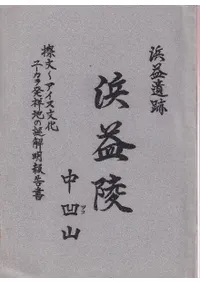 浜益遺跡
浜益陵
中凹山
擦文〜アイヌ文化
ユーカラ発祥地の謎解明報告書